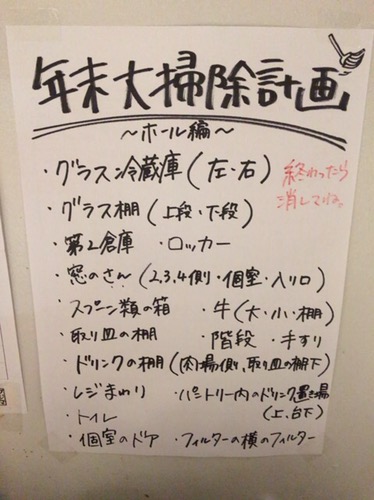 年末大掃除計画
〜ホール編〜
・グラス冷蔵庫(左・右)
終わったら
消してね。
・グラス棚(上段・下段)
・第2倉庫 ・ロッカー
・窓のさん(2,3,4側・個室・入り口)
・スプーン類の箱 ・牛(大・小・棚)
・取り皿の棚 ・階段 ・手すり
・ドリンクの棚(肉場側、取り皿の棚下)
・レジまわり ・パントリー内のドリンク置き場
(上、台下)
・トイレ
・個室のドア ・フィルターの横のフィルター